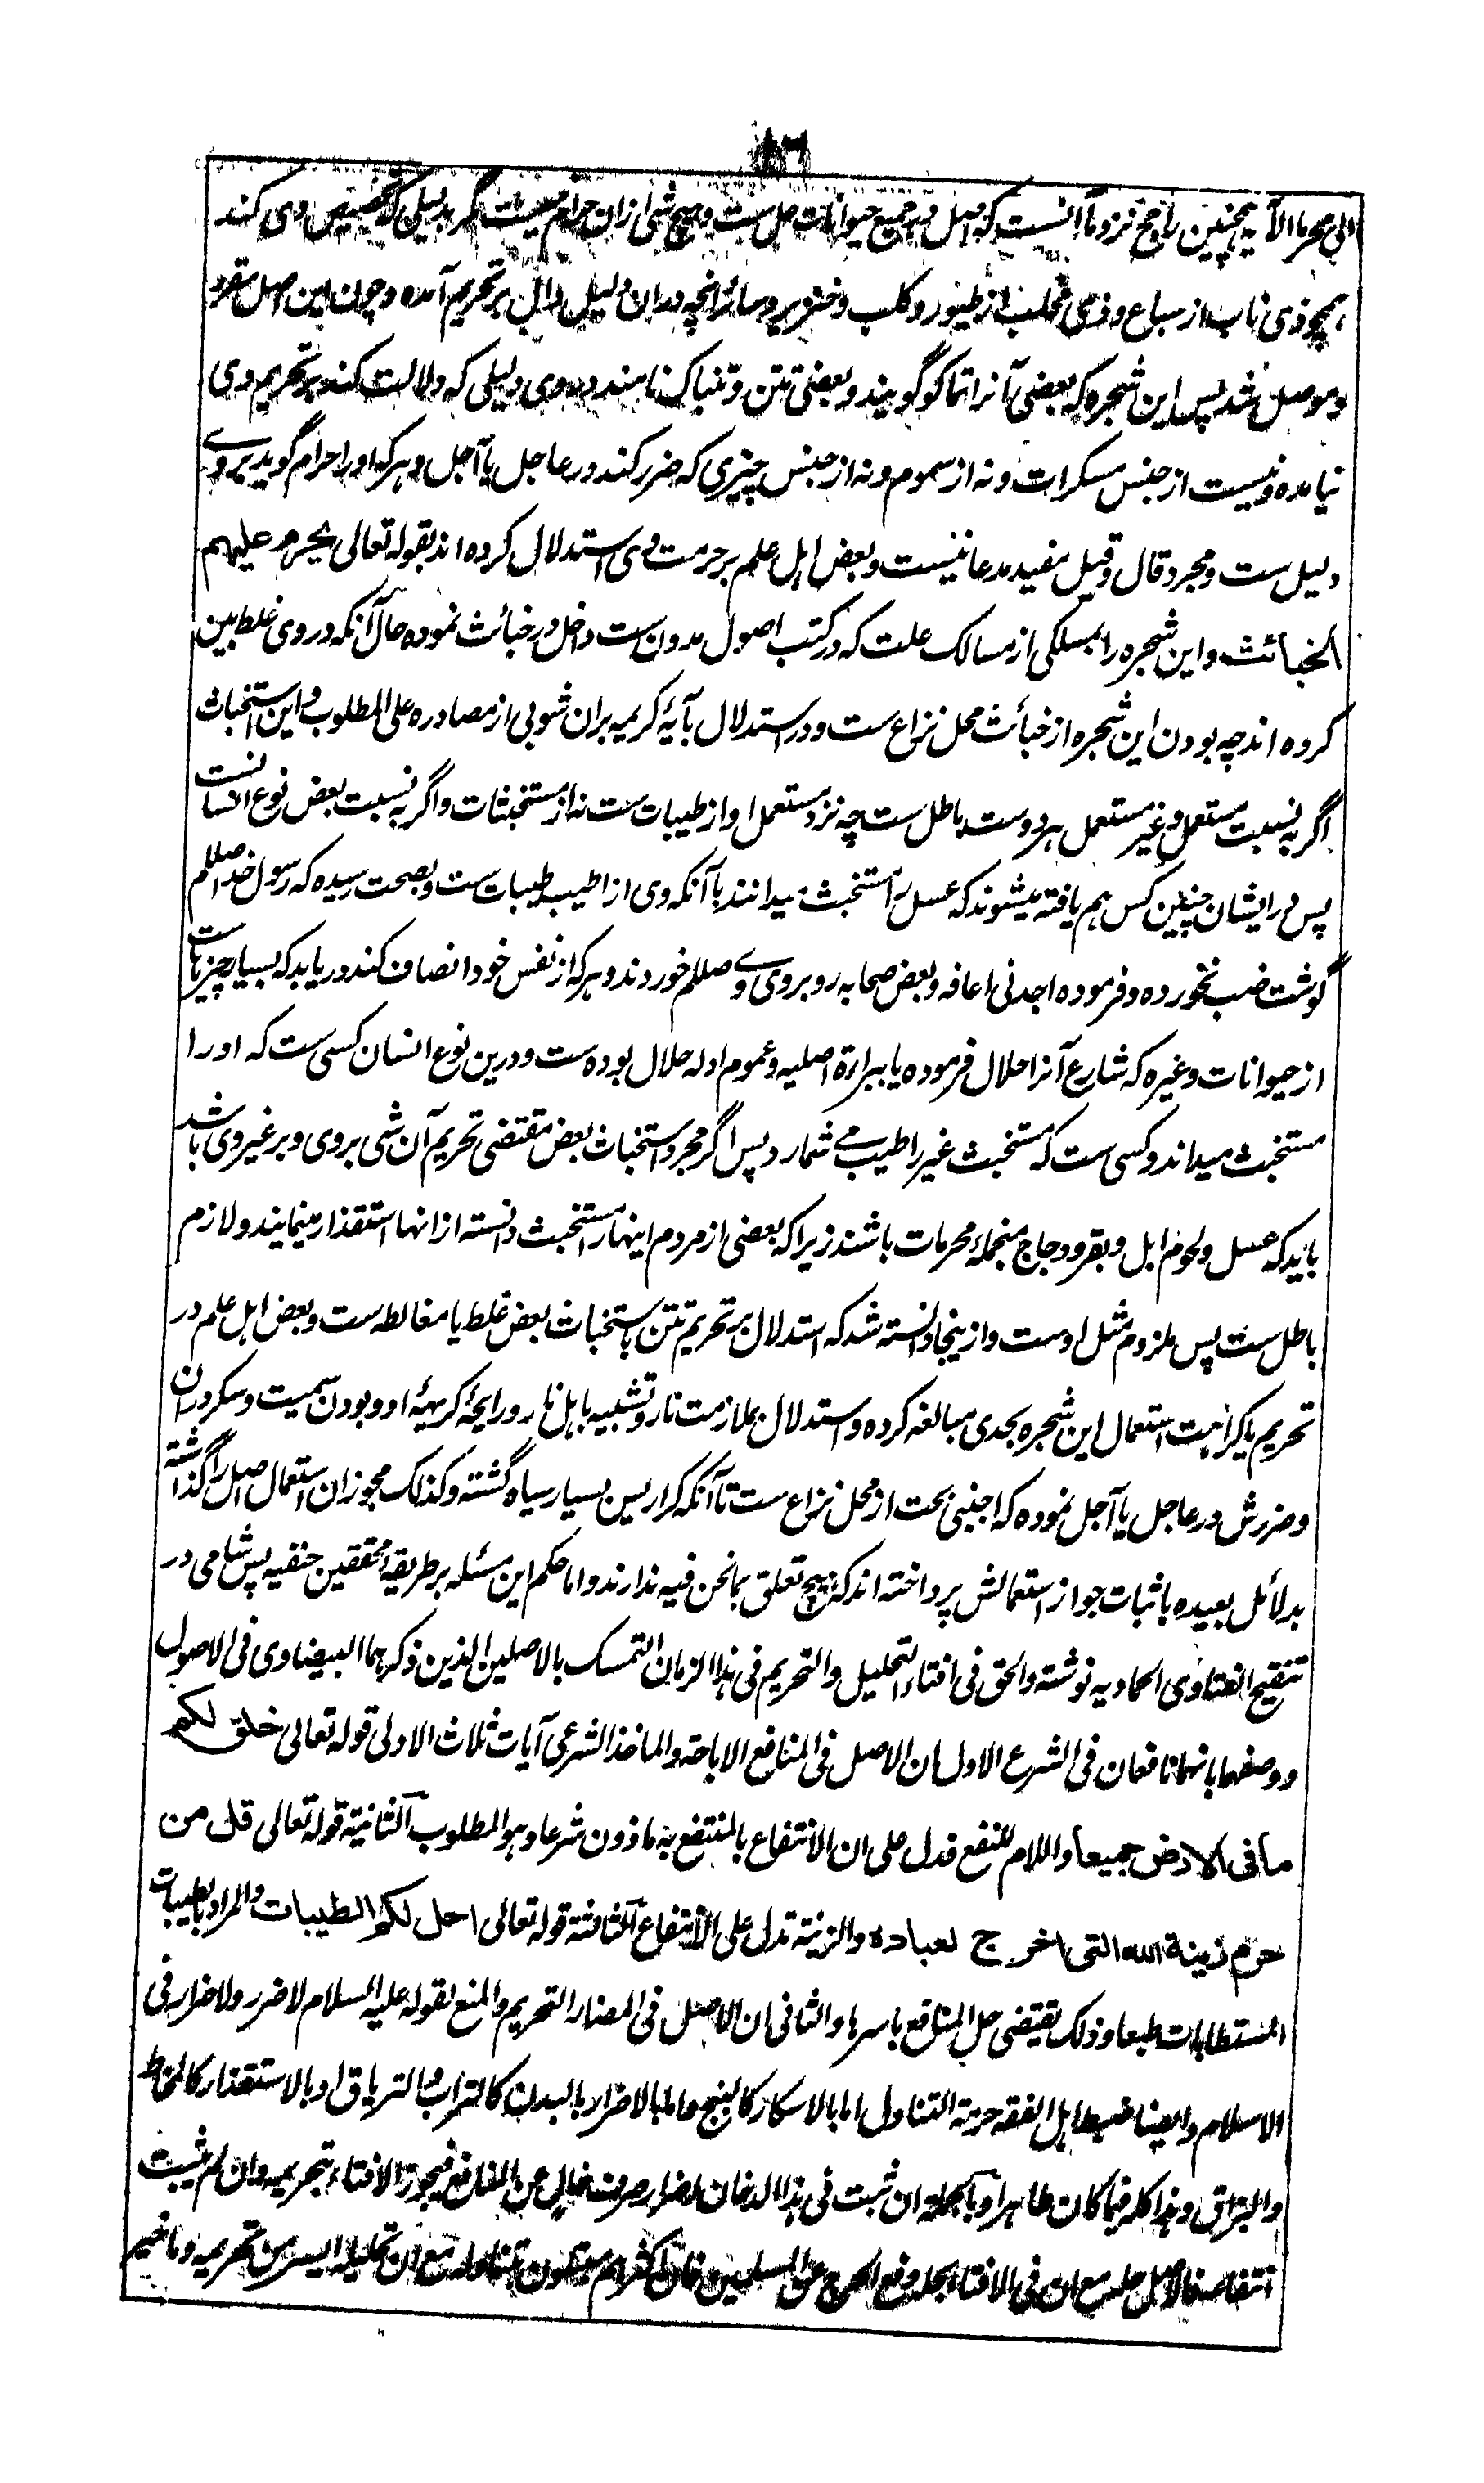 ۸۶
الی محرما الآیه همچنین راجح نزد ما آنست که اصل در جمیع حیوانات حل ست و هیچ شی ازان حرام نیست مگر بدلیل که تخصیص وی کند
همچو ذی ناب از سباع و ذی مخلب از طیور و کلب و خنزیر و سائر انچه دران دلیل دال بر تحریم آمده و چون این اصل مقرر
و موصل شد پس این شجره که بعضی آنرا تماکو گویند و بعضی تتن و تنباک نامند در وی دلیلی که دلالت کند بر تحریم وی
نیامده و نیست از جنس مسکرات و نه از سموم و نه از جنس چیزی که ضرر کند در عاجل یا آجل و هر که او را حرام گوید بر وے
دلیل ست و مجرد قال و قیل مفید مدعا نیست و بعض اهل علم بر حرمت وی استدلال کرده اند بقوله تعالی یحرم علیهم
الخبائث و این شجره را بمسلکی از مسالک علت که در کتب اصول مدون ست داخل در خبائث نموده حال آنکه در وی غلط بین
کرده اند چه بودن این شجره از خبائث محل نزاع ست و در استدلال بآیهٔ کریمه بران شوبی از مصادره علی المطلوب و این استخباث
اگر به نسبت مستعمل و غیر مستعمل هر دوست باطل ست چه نزد مستعمل او از طیبات ست نه از مستخبثات و اگر به نسبت بعض نوع انسانست
پس در ایشان چنین کس هم یافته میشوند که عسل را مستخبث میدانند با آنکه وی از اطیب طیبات ست و بصحت رسیده که رسول خدا صللم
گوشت ضب نخورده و فرموده اجدنی اعافه و بعض صحابه روبروی وے صللم خوردند و هر که از نفس خود انصاف کند دریابد که بسیار چیزهاست
از حیوانات و غیره که شارع آنرا حلال فرموده یا ببراءة اصلیه و عموم ادله حلال بوده ست و درین نوع انسان کسی ست که او را
مستخبث میداند و کسی ست که مستخبث غیر را طیب مے شمارد پس اگر مجرد استخباث بعض مقتضی تحریم آن شی بر وی و بر غیر وی باشد
باید که عسل و لحوم ابل و بقر و دجاج منجملهٔ محرمات باشند زیرا که بعضی از مردم اینها را مستخبث دانسته ازانها استقذار مینمایند و لازم
باطل ست پس ملزوم مثل اوست و ازینجا دانسته شد که استدلال بر تحریم تتن باستخباث بعض غلط یا مغالطه ست و بعض اهل علم در
تحریم یا کراهت استعمال این شجره بحدی مبالغه کرده و استدلال بملازمت نار و تشبیه باهل نار و رایحهٔ کریهٔ او و بودن سمیت و سکر دران
و ضررش در عاجل یا آجل نموده که اجنبی بحت از محل نزاع ست تا آنکه کراریس بسیار سیاه گشته و کذلک مجوزان استعمال اصل را گذاشته
بدلائل بعیده باثبات جواز استعمالش پرداخته اند که هیچ تعلق بما نحن فیه ندارند و اما حکم این مسئله بر طریقهٔ محققین حنفیه پس شامی در
تنقیح الفتاوی الحامدیه نوشته والحق فی افتاء التحلیل والتحریم فی هذا الزمان التمسک بالاصلین الذین ذکرهما البیضاوی فی الاصول
ووصفهما بانهما نافعان فی الشرع الاول ان الاصل فی المنافع الاباحة والماخذ الشرعی آیات ثلاث الاولی قوله تعالی خلق لکم
ما فی الارض جمیعا واللام للنفع فدل علی ان الانتفاع بالمنتفع به ماذون شرعا وهو المطلوب الثانیة قوله تعالی قل من
حرم زینة الله التی اخرج لعباده والزینة تدل علی الانتفاع الثالثة قوله تعالی احل لکم الطیبات والمراد بالطیبات
المستطابات طبعا وذلک یقتضی حل المنافع باسرها والثانی ان الاصل فی المضار التحریم والمنع لقوله علیه السلام لا ضرر ولا ضرار فی
الاسلام وایضا ضبط اهل الفقه حرمة التناول اما بالاسکار کالبنج واما بالاضرار بالبدن کالتراب والتریاق او بالاستقذار کالمخاط
والبزاق وهذا کله فیما کان طاهرا وبالجمله ان ثبت فی هذا الدخان اضرار صرف خال عن المنافع فیجوز الافتاء بتحریمه وان لم یثبت
انتفاعه فالاصل حله مع ان فی الافتاء بحله دفع الحرج عن المسلمین فان اکثرهم مبتلون بتناوله مع ان تحلیله ایسر من تحریمه وما خیر